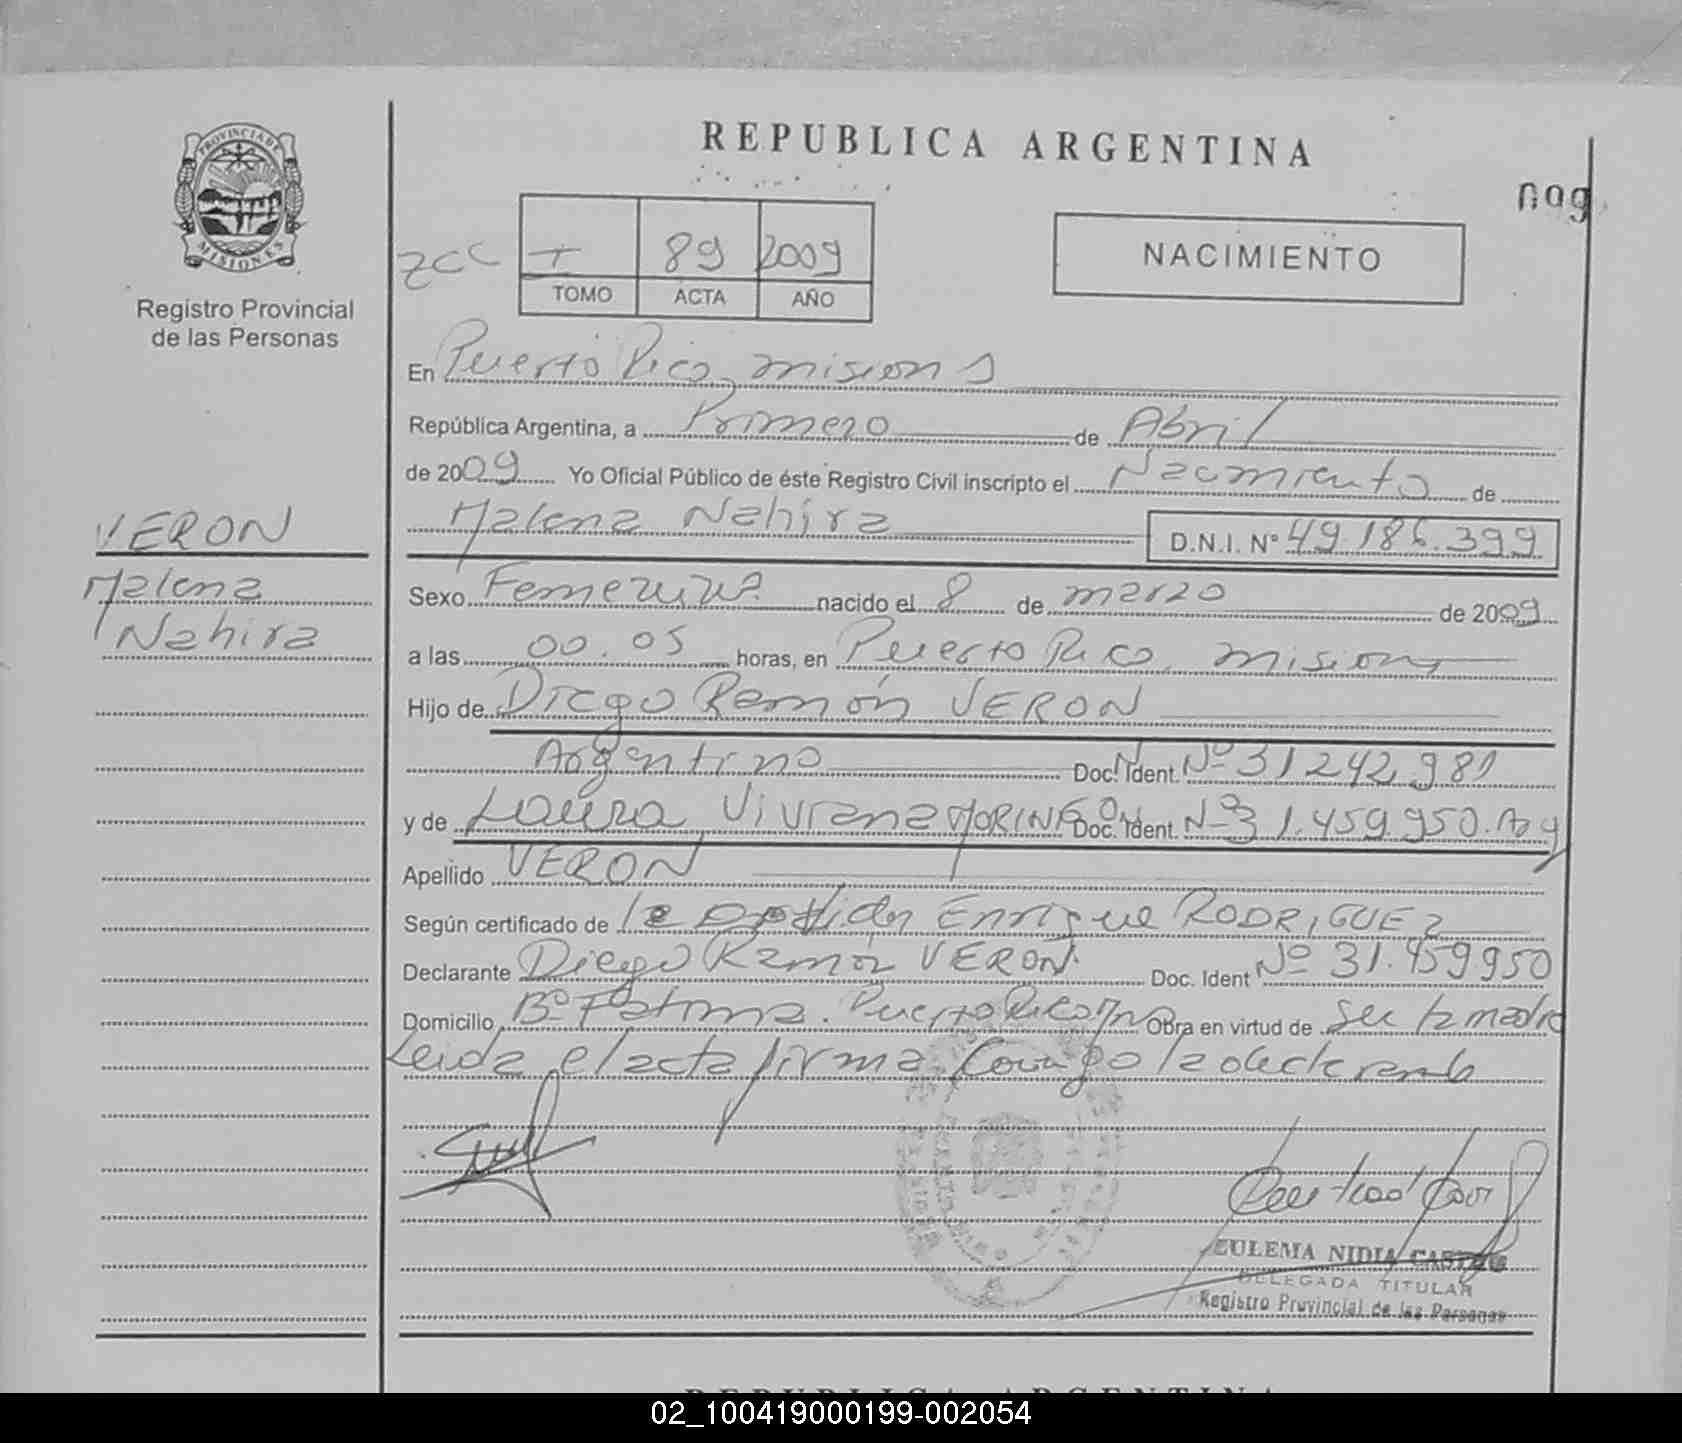 REPUBLICA ARGENTINA
009
PROVINCIA DE
MISIONES
Registro Provincial
de las Personas
I 89 2009
TOMO ACTA AÑO
NACIMIENTO
En Puerto Rico, misiones
República Argentina, a Primero de Abril
de 2009 Yo Oficial Público de éste Registro Civil inscripto el Nacimiento de
Malena Nahira D.N.I. Nº 49.186.399
VERON
Malena
Nahira
Sexo Femenina nacido el 8 de marzo de 2009
a las 00.05 horas, en Puerto Rico, misiones
Hijo de Diego Ramón VERON
Argentino Doc. Ident. Nº 31242,981
y de Laura Viviana MORINIGO Doc. Ident. Nº 31.459.950. Arg
Apellido VERON
Según certificado de la Enrique RODRIGUEZ
Declarante Diego Ramón VERON. Doc. Ident Nº 31.459950
Domicilio Bº Fatima. Puerto Rico Mnes Obra en virtud de ser la madre
Leida el acta firma Conmigo la declarante
ZULEMA NIDIA CASTRO
DELEGADA TITULAR
Registro Provincial de las Personas
REPUBLICA ARGENTINA
02_100419000199-002054